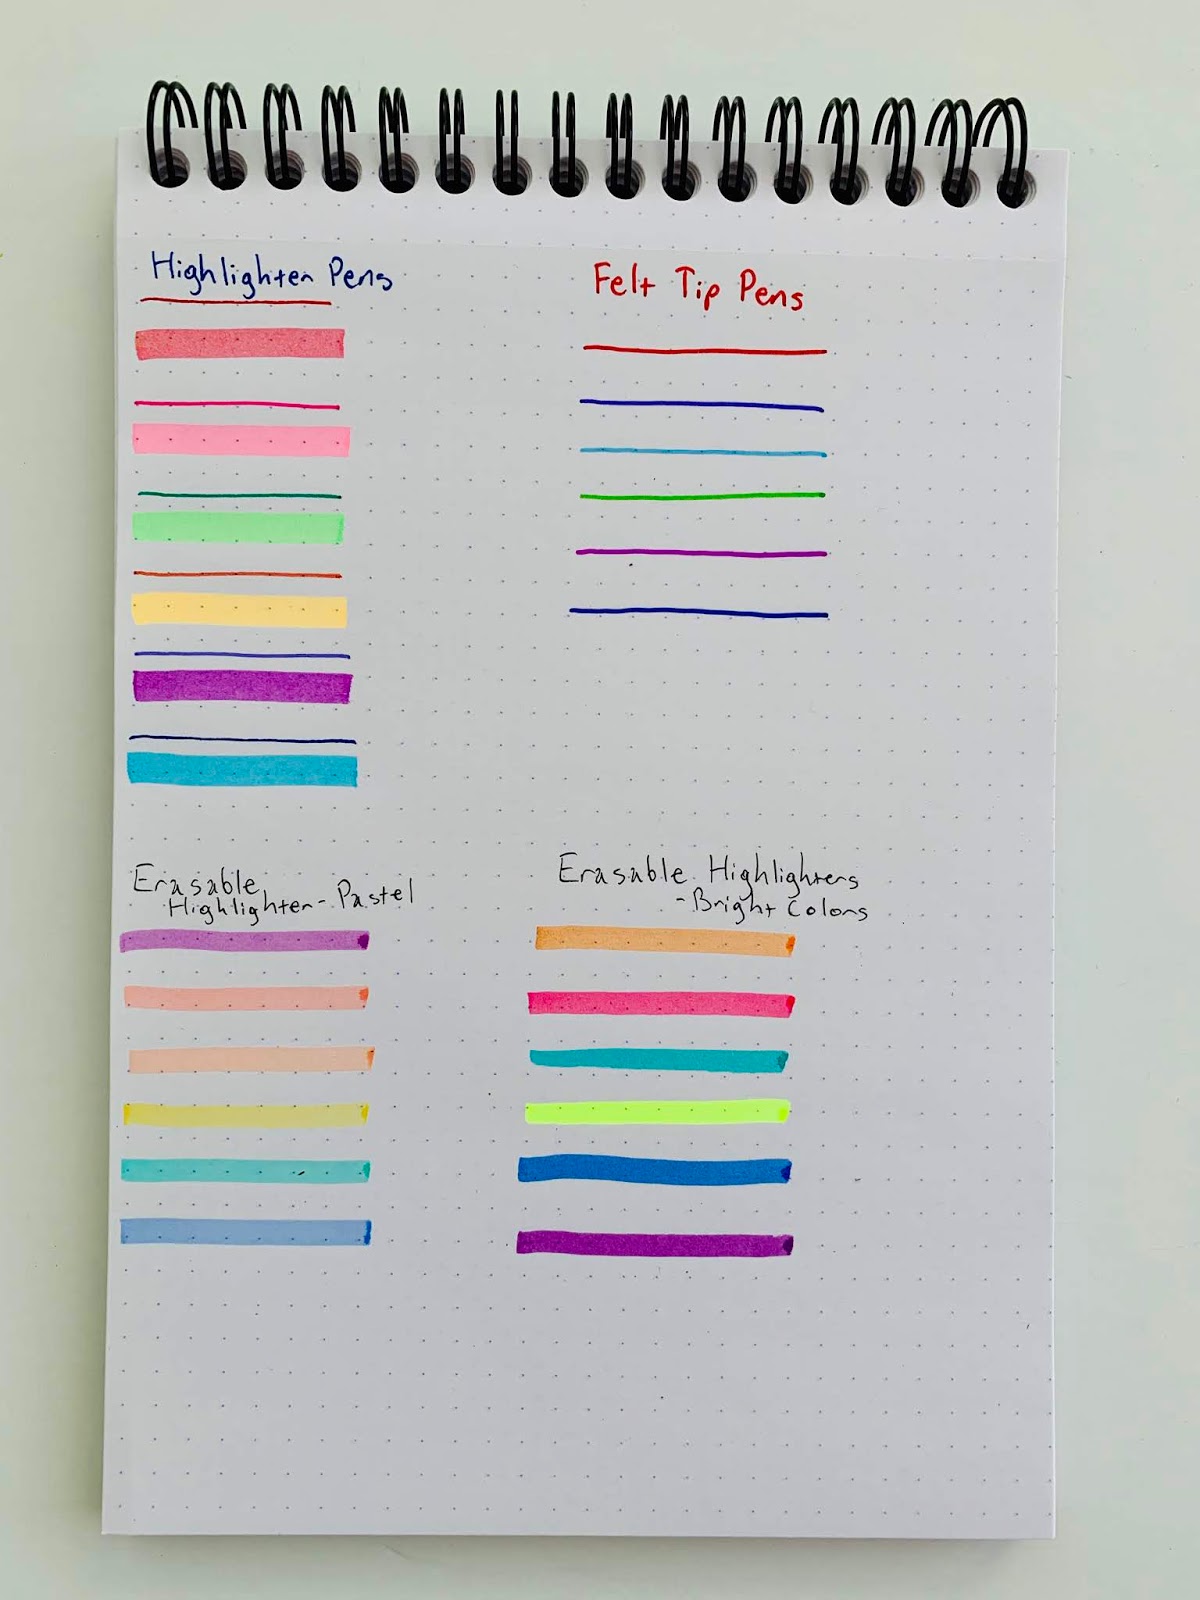 Highlighter Pens
Felt Tip Pens
Erasable
Highlighter - Pastel
Erasable Highlighters
- Bright Colors